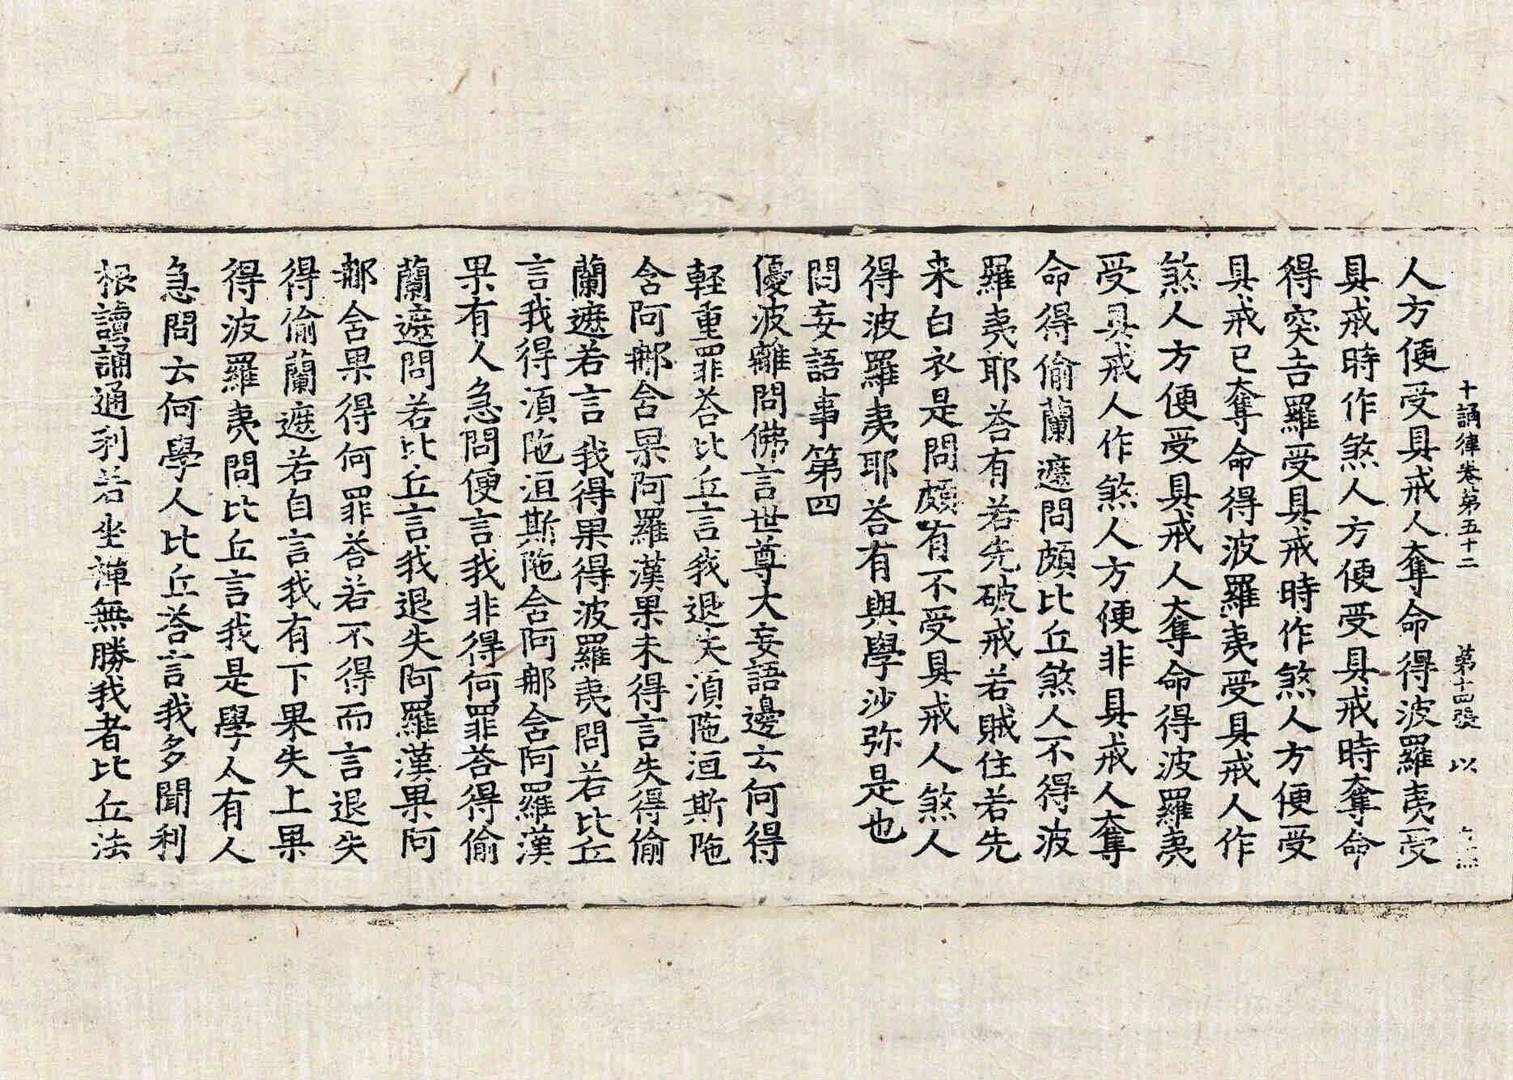 十誦律卷第五十二　第十四張　以
人方便受具戒人奪命得波羅夷受
具戒時作煞人方便受具戒時奪命
得突吉羅受具戒時作煞人方便受
具戒已奪命得波羅夷受具戒人作
煞人方便受具戒人奪命得波羅夷
受具戒人作煞人方便非具戒人奪
命得偷蘭遮問頗比丘煞人不得波
羅夷耶荅有若先破戒若賊住若先
来白衣是問頗有不受具戒人煞人
得波羅夷耶荅有與學沙弥是也
問妄語事第四
優波離問佛言世尊大妄語邊云何得
輕重罪荅比丘言我退失湏陁洹斯陁
含阿那含果阿羅漢果未得言失得偷
蘭遮若言我得果得波羅夷問若比丘
言我得湏陁洹斯陁含阿那含阿羅漢
果有人急問便言我非得何罪荅得偷
蘭遮問若比丘言我退失阿羅漢果阿
那含果得何罪荅若不得而言退失
得偷蘭遮若自言我有下果失上果
得波羅夷問比丘言我是學人有人
急問云何學人比丘荅言我多聞利
根讀誦通利若坐禪無勝我者比丘法